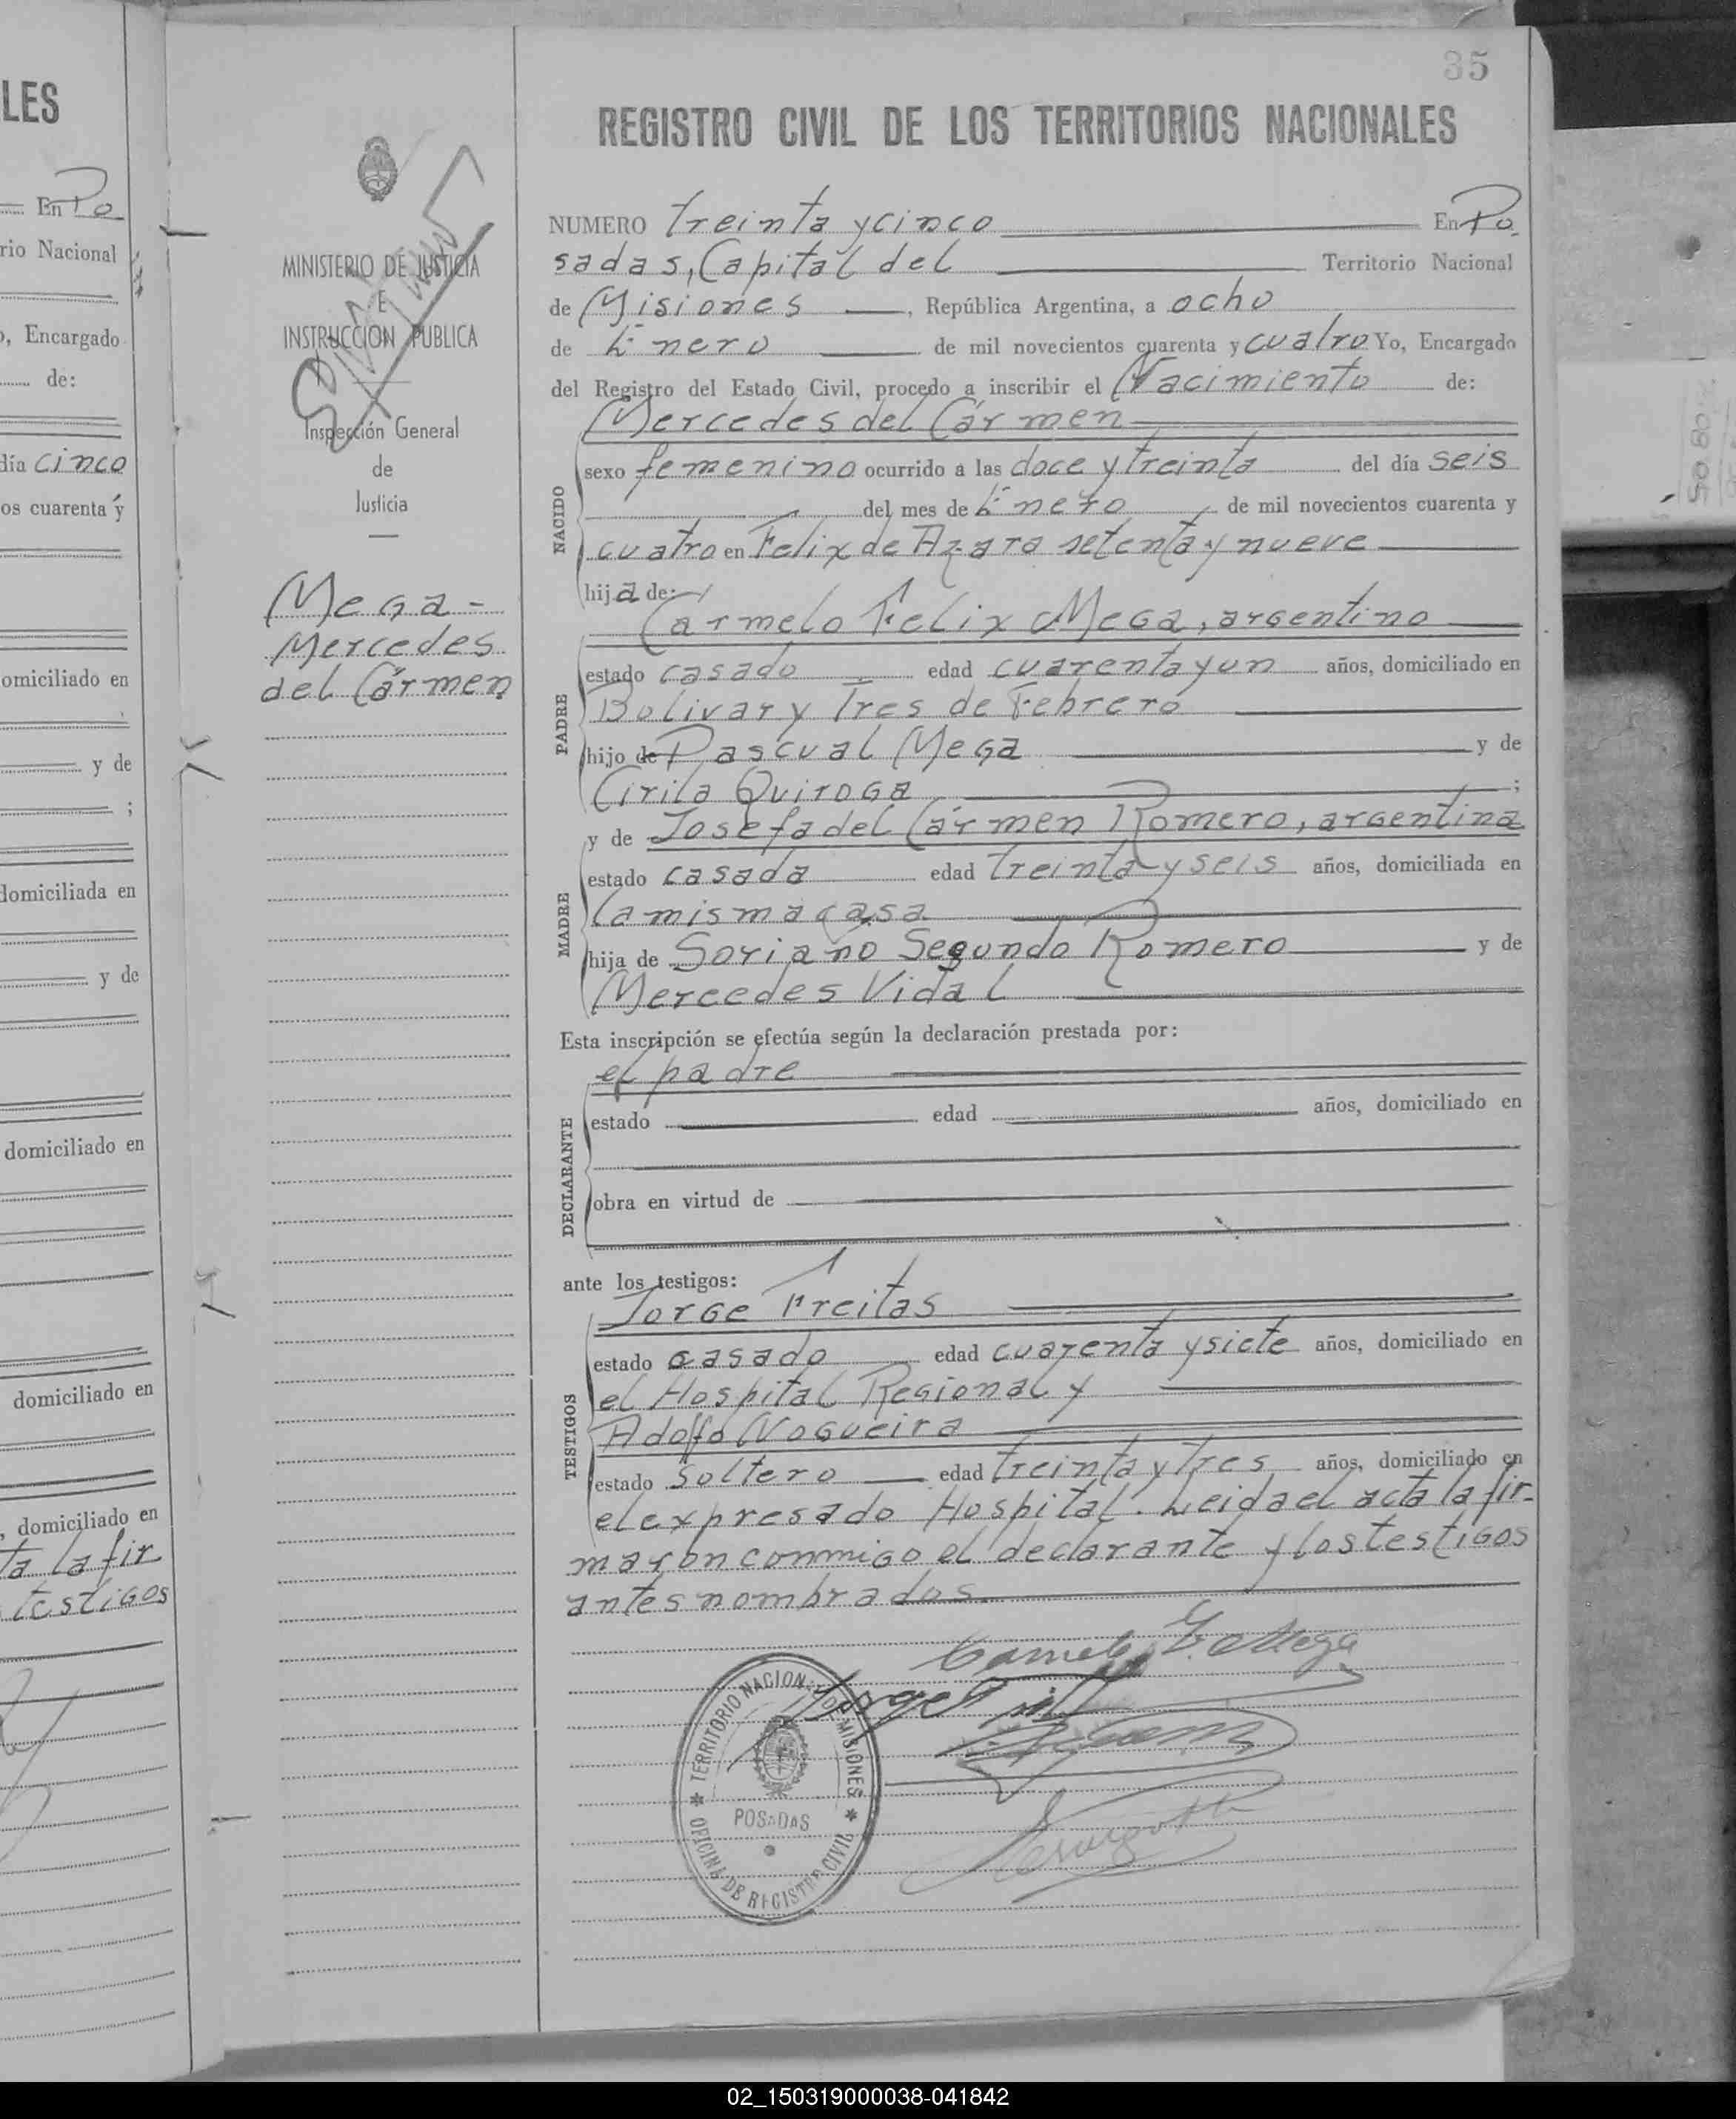 LES
En Po
rio Nacional
, Encargado
de:
día cinco
os cuarenta y
omiciliado en
y de
;
domiciliada en
y de
domiciliado en
domiciliado en
, domiciliado en
ta la fir
testigos
MINISTERIO DE JUSTICIA
E
INSTRUCCION PUBLICA
Inspección General
de
Justicia
Mega-
Mercedes
del Cármen
35
REGISTRO CIVIL DE LOS TERRITORIOS NACIONALES
NUMERO treinta y cinco En Po
sadas, Capital del Territorio Nacional
de Misiones, República Argentina, a ocho
de Enero de mil novecientos cuarenta y cuatro Yo, Encargado
del Registro del Estado Civil, procedo a inscribir el Nacimiento de:
NACIDO
Mercedes del Cármen
sexo femenino ocurrido a las doce y treinta del día seis
del mes de Enero de mil novecientos cuarenta y
cuatro en Felix de Azara setenta y nueve
hija de:
PADRE
Carmelo Felix Mega, argentino
estado casado edad cuarenta y un años, domiciliado en
Bolivar y Tres de Febrero
hijo de Pascual Mega y de
Cirila Quiroga ;
MADRE
y de Josefa del Cármen Romero, argentina
estado casada edad treinta y seis años, domiciliada en
la misma casa
hija de Soriano Segundo Romero y de
Mercedes Vidal
Esta inscripción se efectúa según la declaración prestada por:
DECLARANTE
el padre
estado edad años, domiciliado en
obra en virtud de
ante los testigos:
TESTIGOS
Jorge Freitas
estado casado edad cuarenta y siete años, domiciliado en
el Hospital Regional y
Adolfo Nogueira
estado soltero edad treinta y tres años, domiciliado en
el expresado Hospital. Leida el acta la fir-
maron conmigo el declarante y los testigos
antes nombrados.
Carmelo F. Mega
TERRITORIO NACIONAL DE MISIONES
POSADAS
OFICINA DE REGISTRO CIVIL
02_150319000038-041842